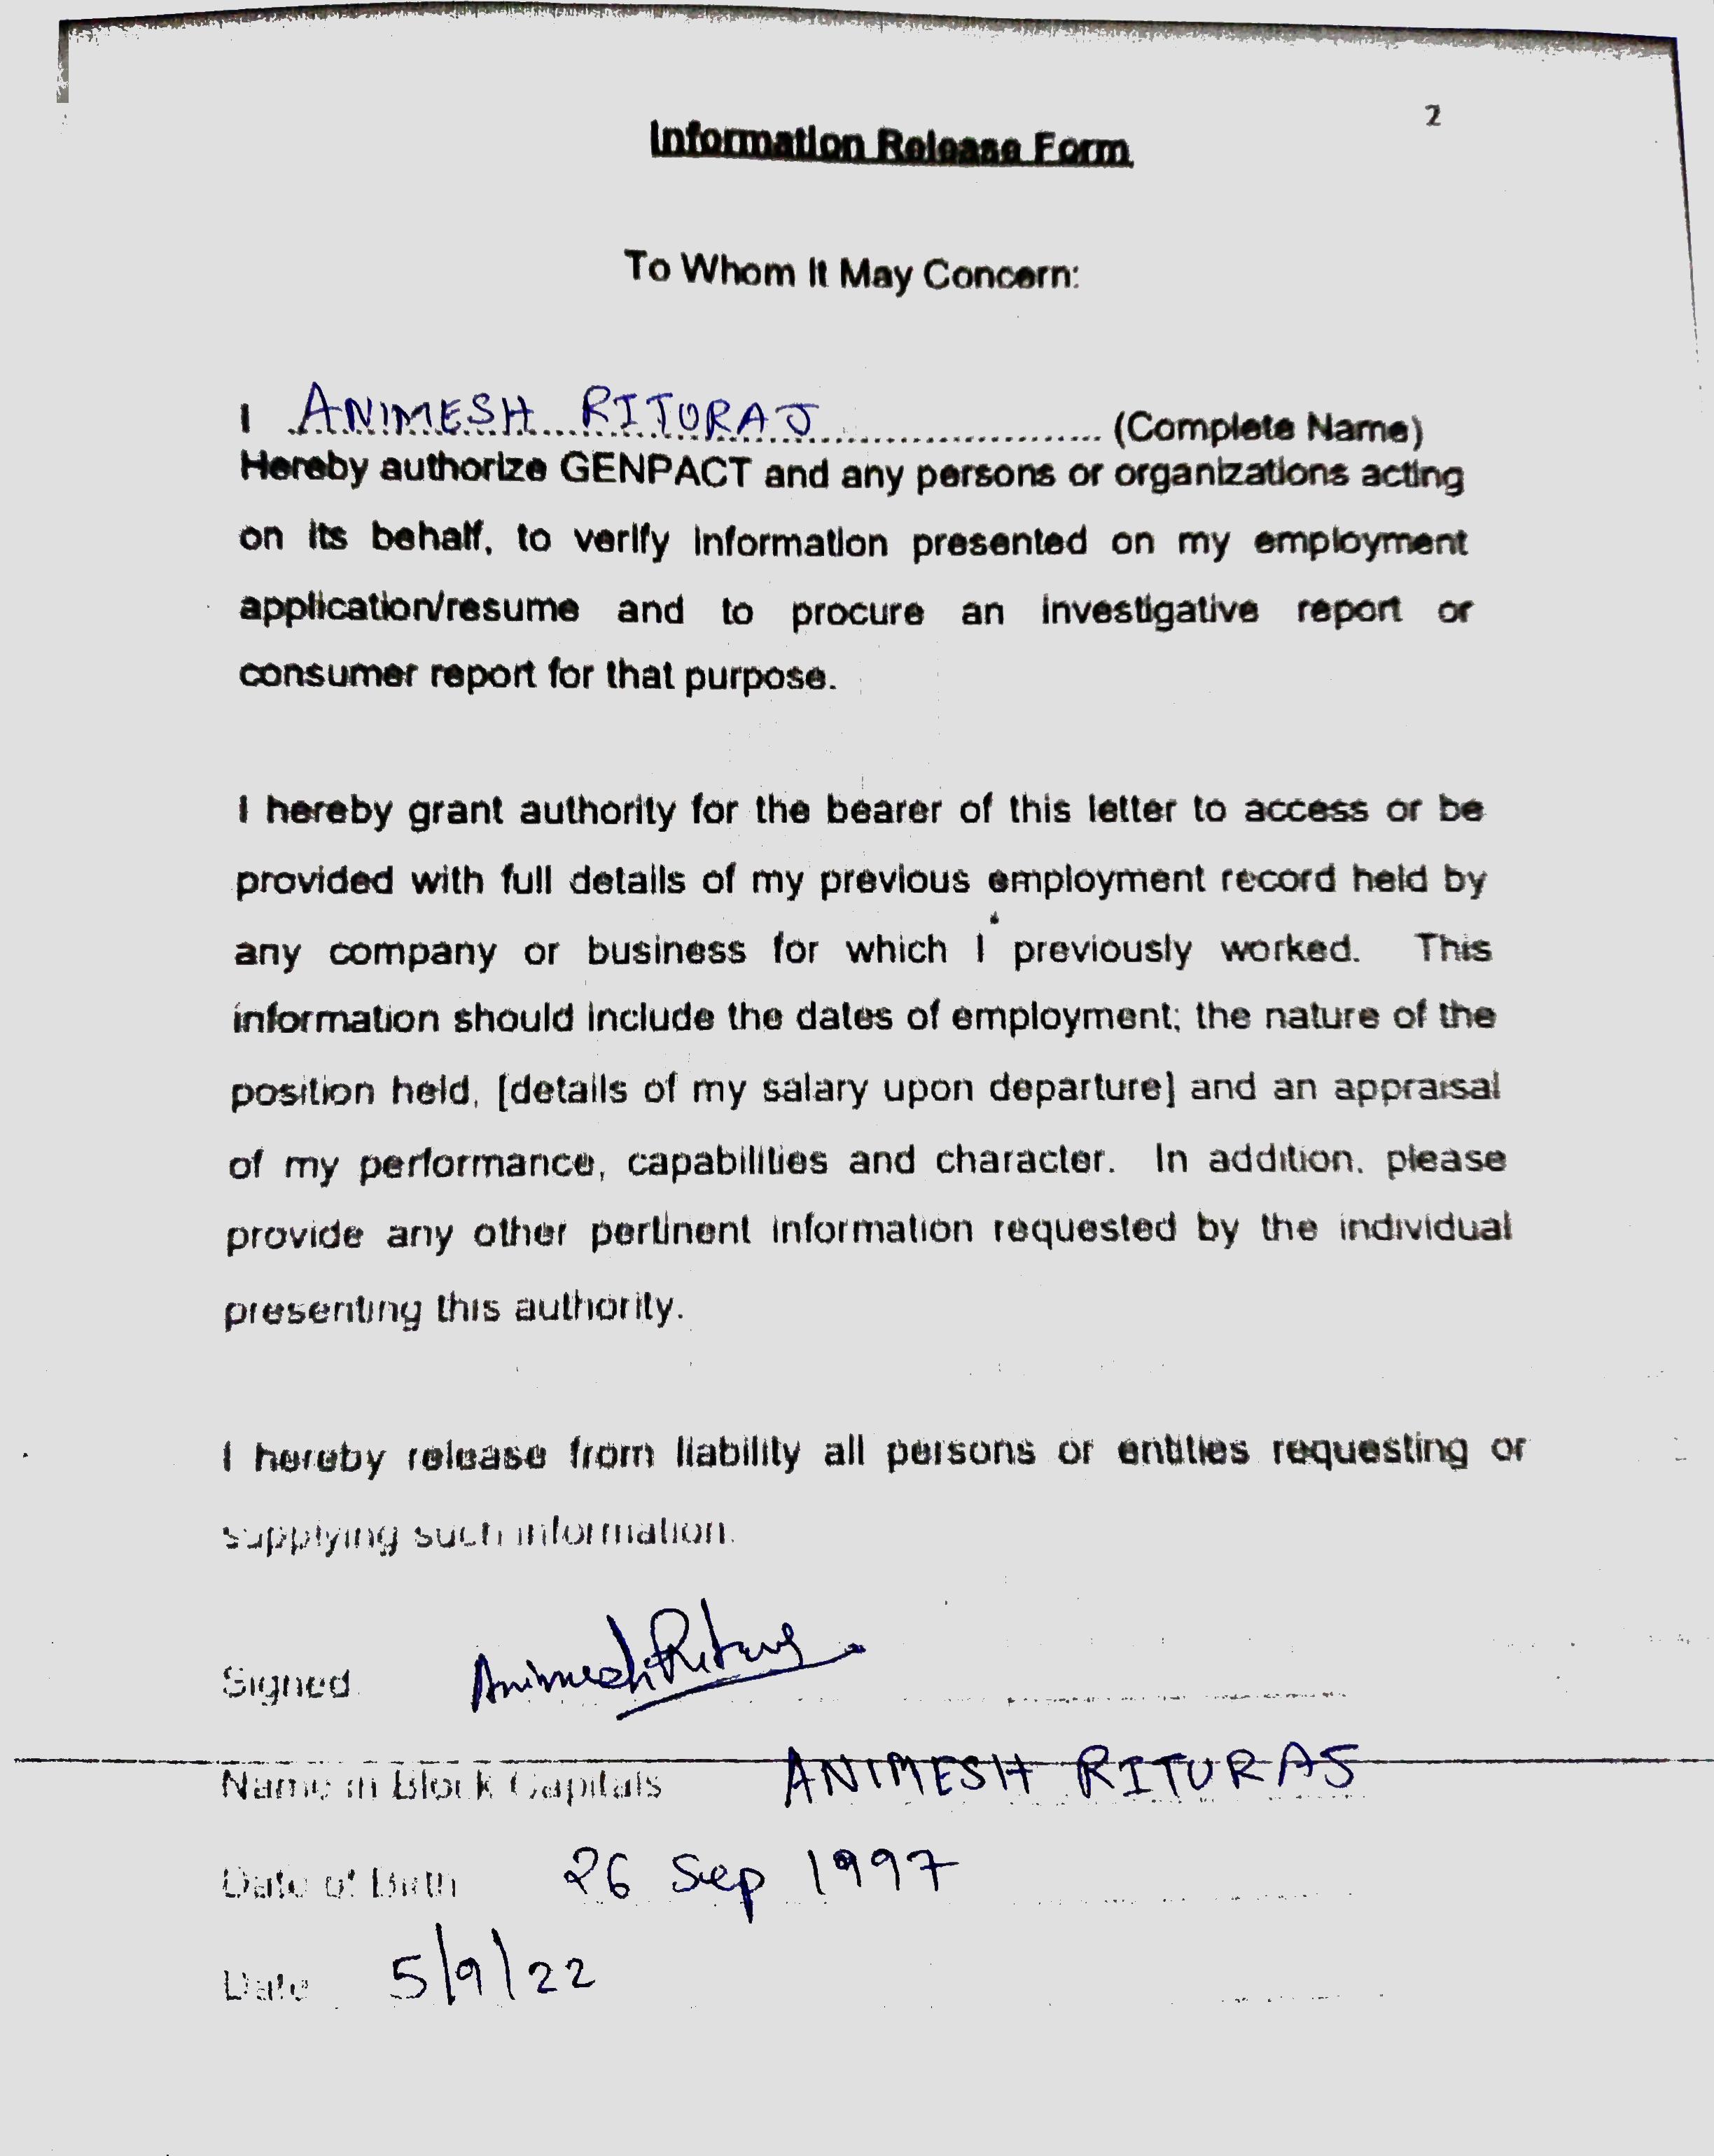 2
Information Release Form
To Whom It May Concern:
I ANIMESH RITURAJ (Complete Name)
Hereby authorize GENPACT and any persons or organizations acting
on its behalf, to verify information presented on my employment
application/resume and to procure an investigative report or
consumer report for that purpose.
I hereby grant authority for the bearer of this letter to access or be
provided with full details of my previous employment record held by
any company or business for which I previously worked. This
information should include the dates of employment; the nature of the
position held, [details of my salary upon departure] and an appraisal
of my performance, capabilities and character. In addition, please
provide any other pertinent information requested by the individual
presenting this authority.
I hereby release from liability all persons or entities requesting or
supplying such information.
Signed Animesh Rituraj
Name in Block Capitals ANIMESH RITURAJ
Date of Birth 26 Sep 1997
Date 5/9/22